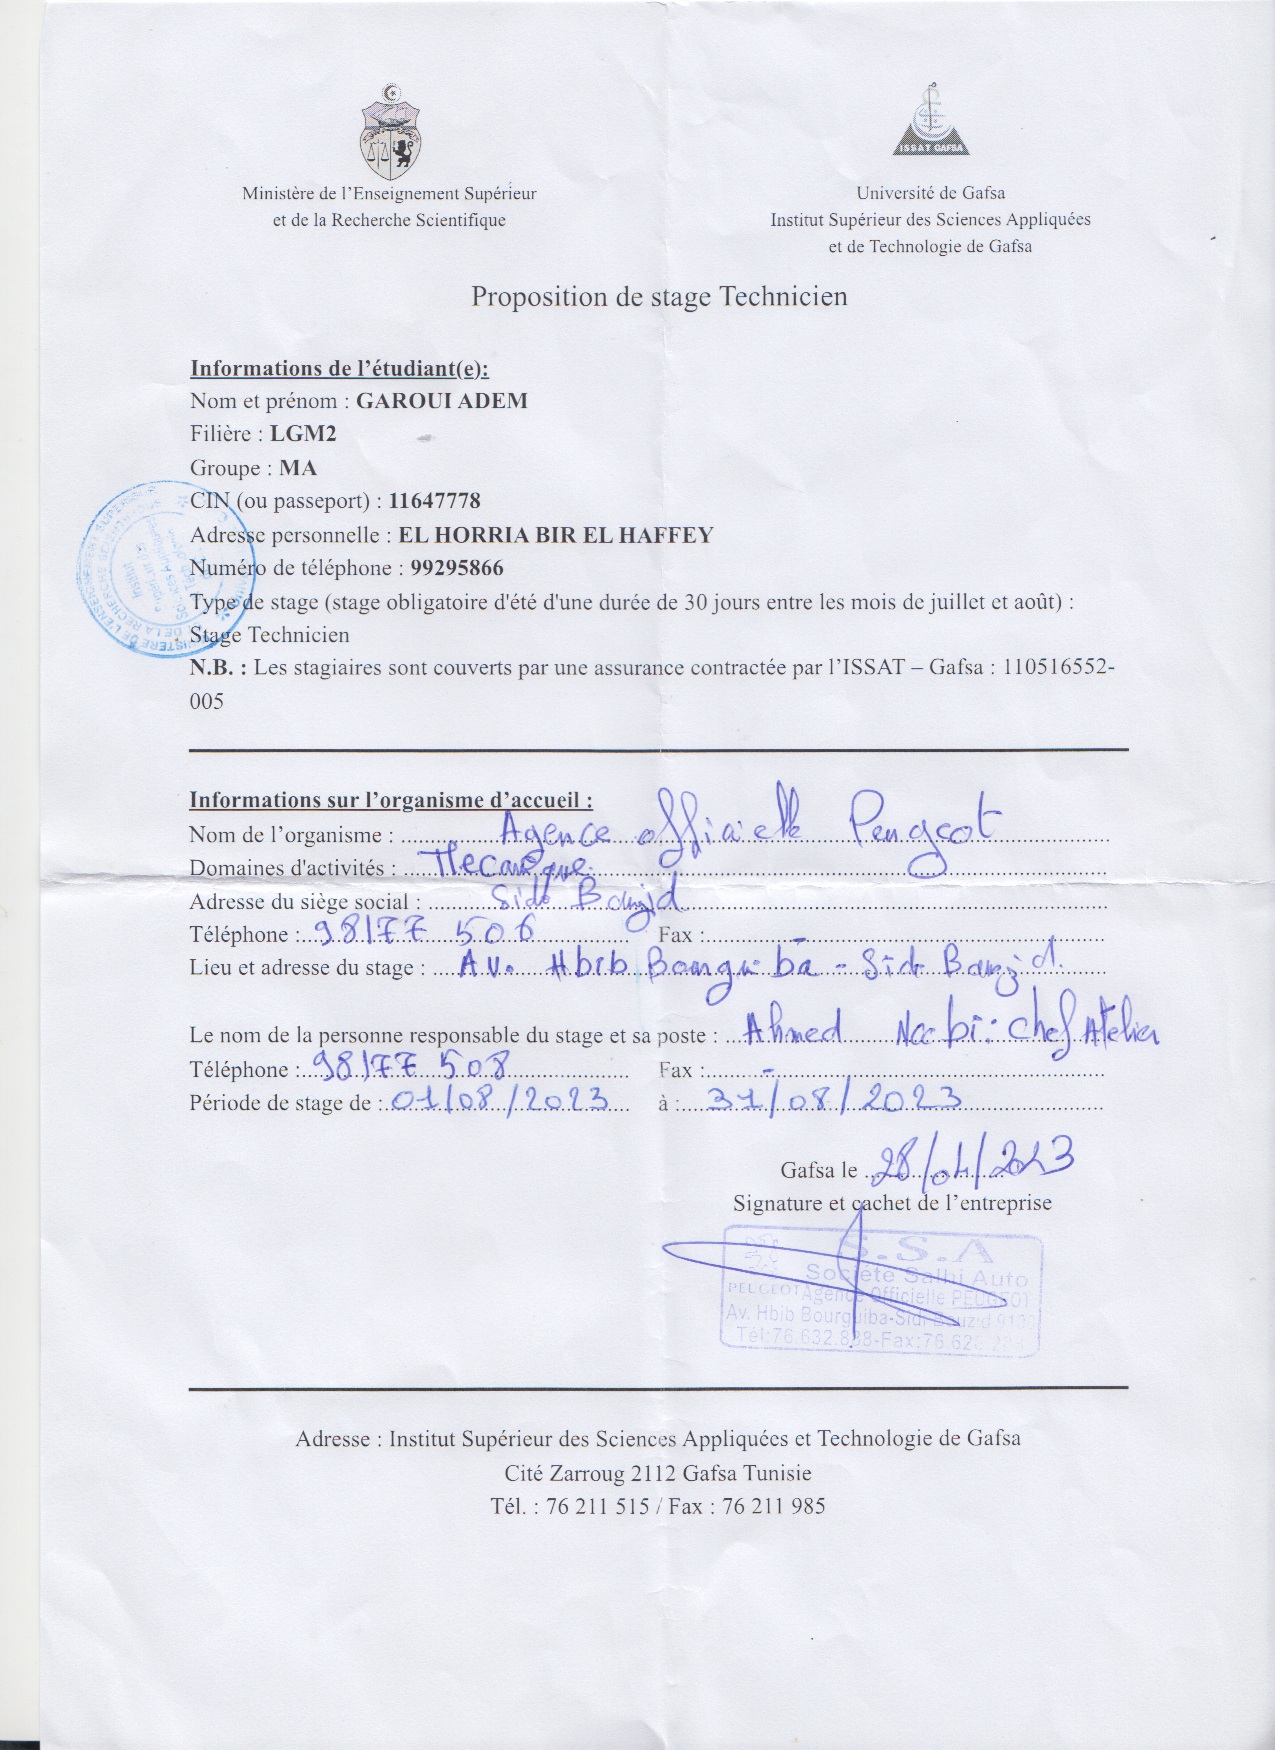 ISSAT GAFSA
Ministère de l'Enseignement Supérieur
et de la Recherche Scientifique
Université de Gafsa
Institut Supérieur des Sciences Appliquées
et de Technologie de Gafsa
Proposition de stage Technicien
Informations de l'étudiant(e):
Nom et prénom : GAROUI ADEM
Filière : LGM2
Groupe : MA
CIN (ou passeport) : 11647778
Adresse personnelle : EL HORRIA BIR EL HAFFEY
Numéro de téléphone : 99295866
Type de stage (stage obligatoire d'été d'une durée de 30 jours entre les mois de juillet et août) :
Stage Technicien
N.B. : Les stagiaires sont couverts par une assurance contractée par l'ISSAT – Gafsa : 110516552-
005
Informations sur l'organisme d'accueil :
Nom de l'organisme : Agence officielle Peugeot
Domaines d'activités : Mecanique
Adresse du siège social : Sidi Bouzid
Téléphone : 98177 506 Fax :
Lieu et adresse du stage : Av. Hbib Bourguiba - Sidi Bouzid.
Le nom de la personne responsable du stage et sa poste : Ahmed Necbi : chef Atelier
Téléphone : 98177 508 Fax : -
Période de stage de : 01/08/2023 à : 31/08/2023
Gafsa le 28/04/2023
Signature et cachet de l'entreprise
S.S.A
Société Salhi Auto
PEUGEOT Agence Officielle PEUGEOT
Av. Hbib Bourguiba-Sidi Bouzid
Tél:76.632.838-Fax:76.62
Adresse : Institut Supérieur des Sciences Appliquées et Technologie de Gafsa
Cité Zarroug 2112 Gafsa Tunisie
Tél. : 76 211 515 / Fax : 76 211 985